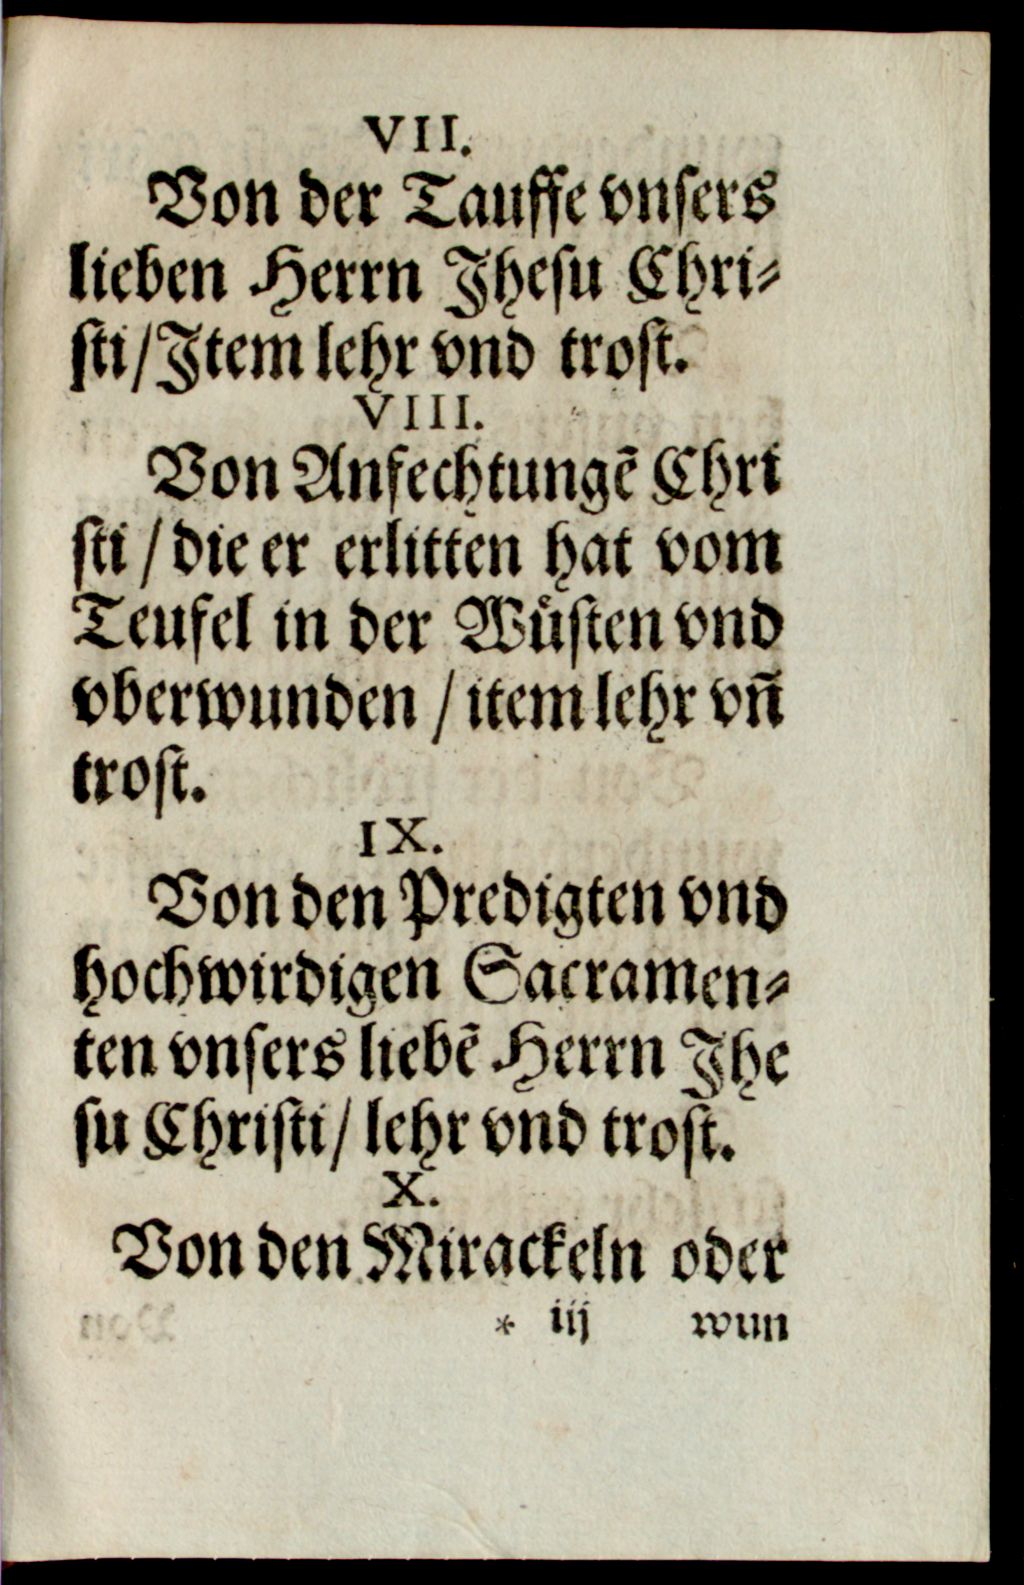 VII.
Von der Tauffe vnsers
lieben Herrn Jhesu Chri⸗
sti/Jtem lehr vnd trost.
VIII.
Von Anfechtungẽ Chri
sti / die er erlitten hat vom
Teufel in der Wuͤsten vnd
vberwunden / item lehr vñ
trost.
IX.
Von den Predigten vnd
hochwirdigen Sacramen⸗
ten vnsers liebẽ Herrn Jhe
su Christi/ lehr vnd trost.
X.
Von den Mirackeln oder
* iij wun